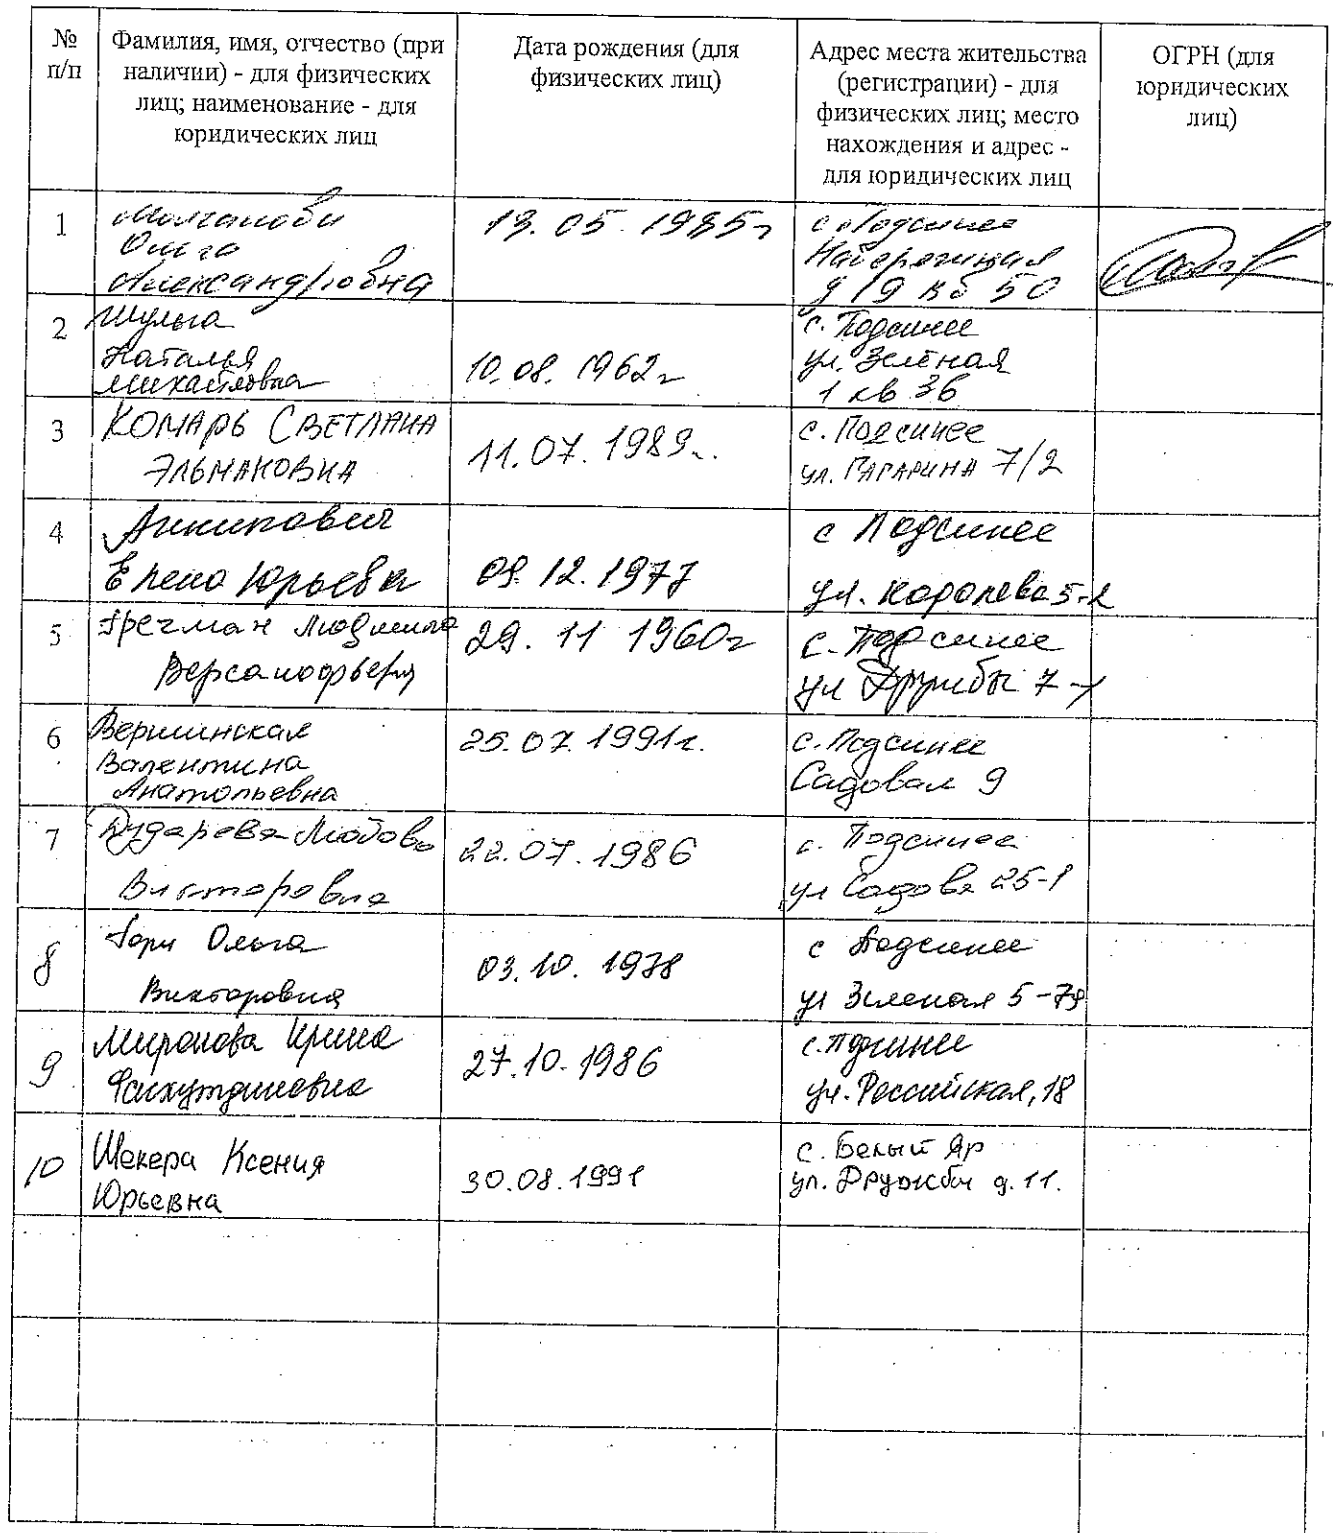 № п/п
Фамилия, имя, отчество (при
наличии) - для физических
лиц; наименование - для
юридических лиц
Дата рождения (для
физических лиц)
Адрес места жительства
(регистрации) - для
физических лиц; место
нахождения и адрес -
для юридических лиц
ОГРН (для
юридических
лиц)
1
Молганова
Ольга
Александровна
1985г
с. Подсинее
Набережная
д 19 кв 50
2
Шульга
Наталья
Михайловна
10.08.1962г
с. Подсинее
ул. Зелёная
1 кв 36
3
КОМАРЬ СВЕТЛАНА
ЭЛЬМАНОВНА
11.07.1989г.
с. Подсинее
ул. ГАГАРИНА 7/2
4
Елена Юрьевна
09.12.1977
с Подсинее
ул. Королева 5-2
5
Людмила
29. 11 1960г
с. Подсинее
ул Дружбы 7-1
6
Вершинская
Валентина
Анатольевна
25.07.1991г.
с. Подсинее
Садовая 9
7
Кударева Любовь
Викторовна
22.07.1986
с. Подсинее
ул Садовая 25-1
8
Ольга
Викторовна
03.10.1978
с Подсинее
ул Зеленая 5-79
9
Миронова Ирина
27.10.1986
с. Подсинее
ул. Российская, 18
10
Шекера Ксения
Юрьевна
30.08.1991
с. Белый Яр
ул. Дружбы д. 11.